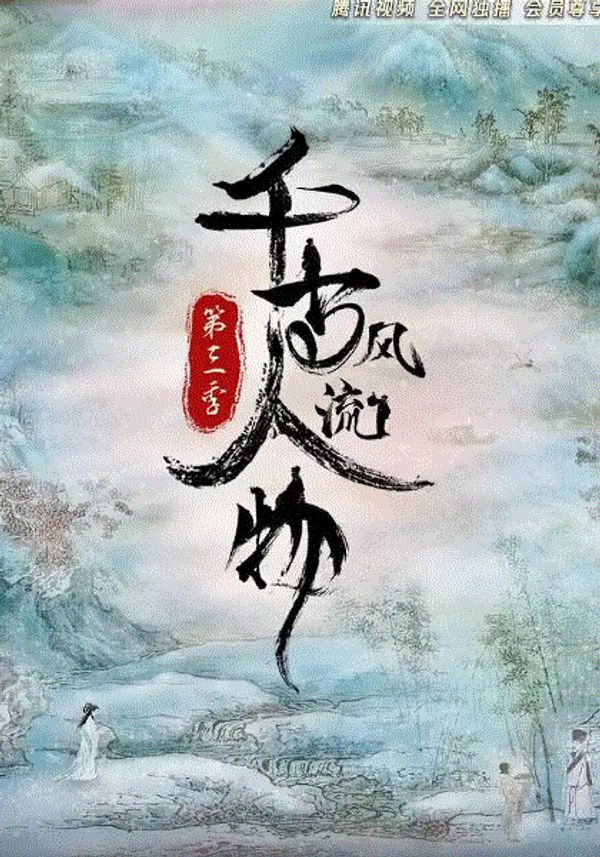 腾讯视频 全网独播 会员尊
千古风流人物
第三季